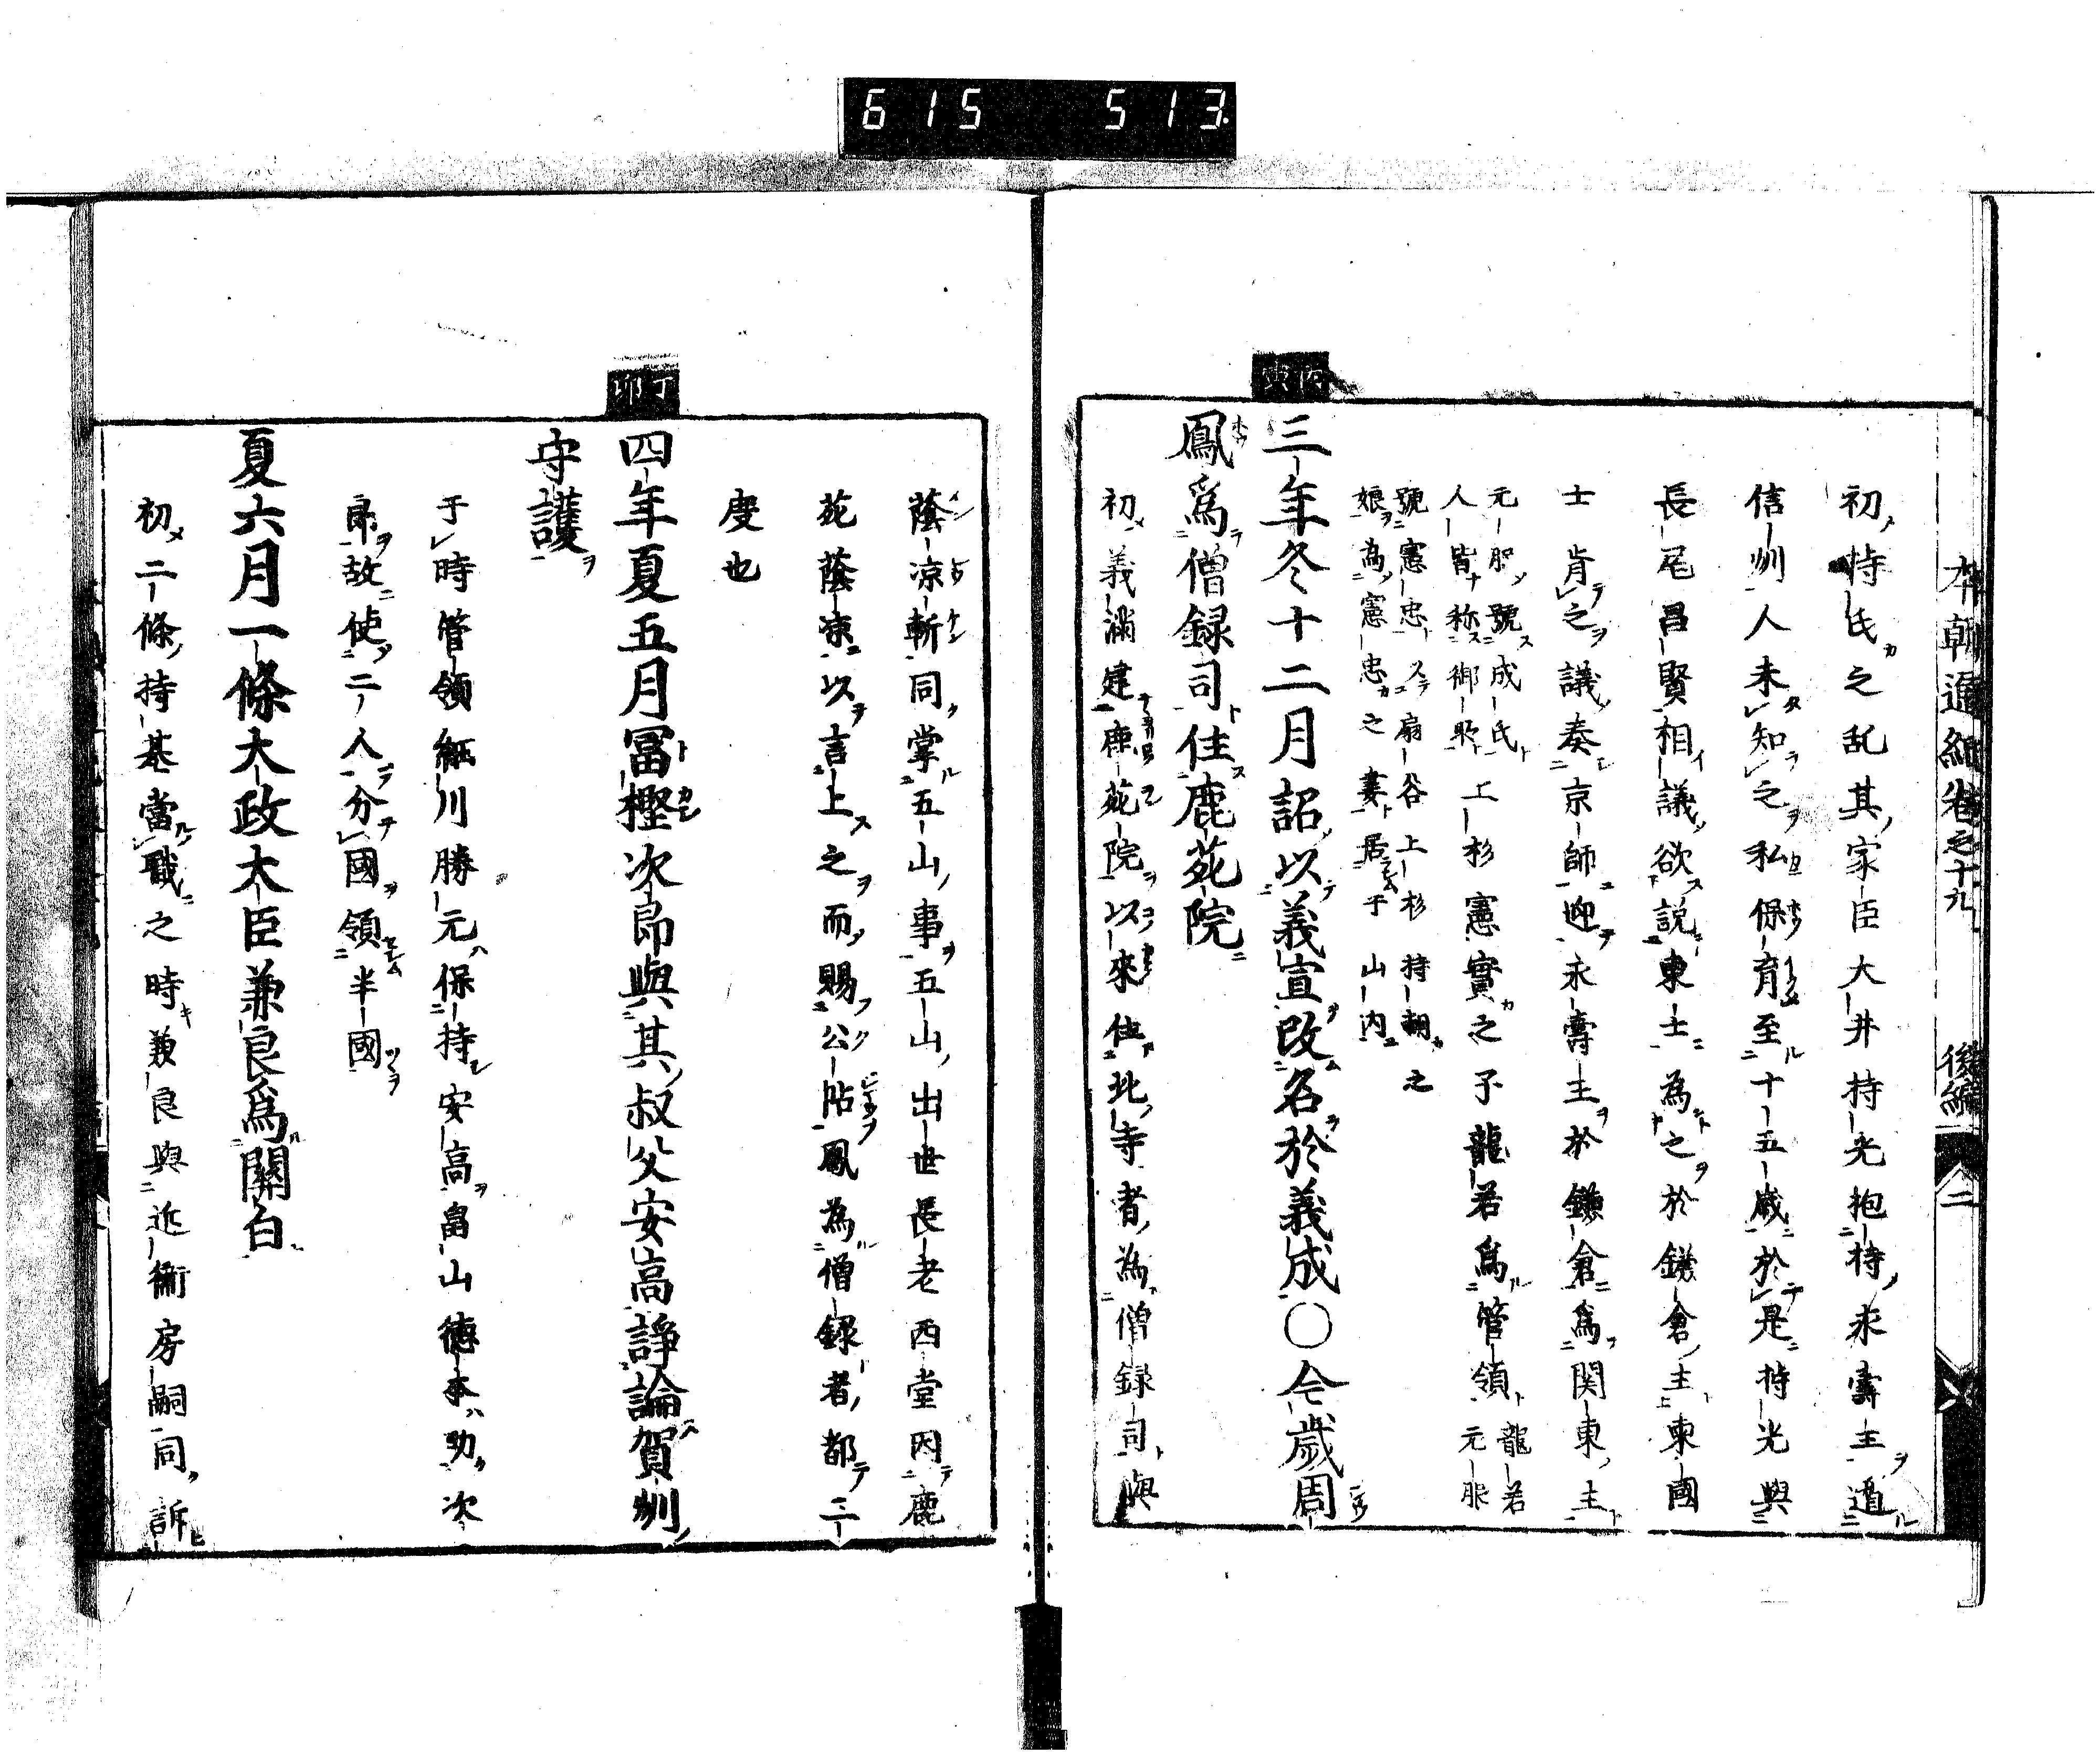 615 513
本朝通紀卷之十九 後編 二
初持氏之乱其家臣大井持光抱持永壽主遁
信州人未知之私保育至十五歳於是持光與
長尾昌賢相議欲説東士為之於鎌倉主東國
士肯之議奏京師迎永壽主於鎌倉爲関東主
元服號成氏
人皆称御所
上杉憲實之子龍若爲管領
龍若
元服
號憲忠以扇谷上杉持朝之
娘為憲忠之妻居于山内
丙寅
三年冬十二月詔以義宣改名於義成〇今歳周
鳳爲僧録司住鹿苑院
初義滿建鹿苑院以來住此寺者為僧録司與
蔭凉軒同掌五山事五山出世長老西堂因鹿
苑蔭凉以言上之而賜公帖鳳為僧録者都二
度也
丁卯
四年夏五月冨樫次郎與其叔父安高諍論賀州
守護
于時管領細川勝元保持安高畠山德本助次
郎故使二人分國領半國
夏六月一條大政大臣兼良爲關白
初二條持基當職之時兼良與近衛房嗣同訴